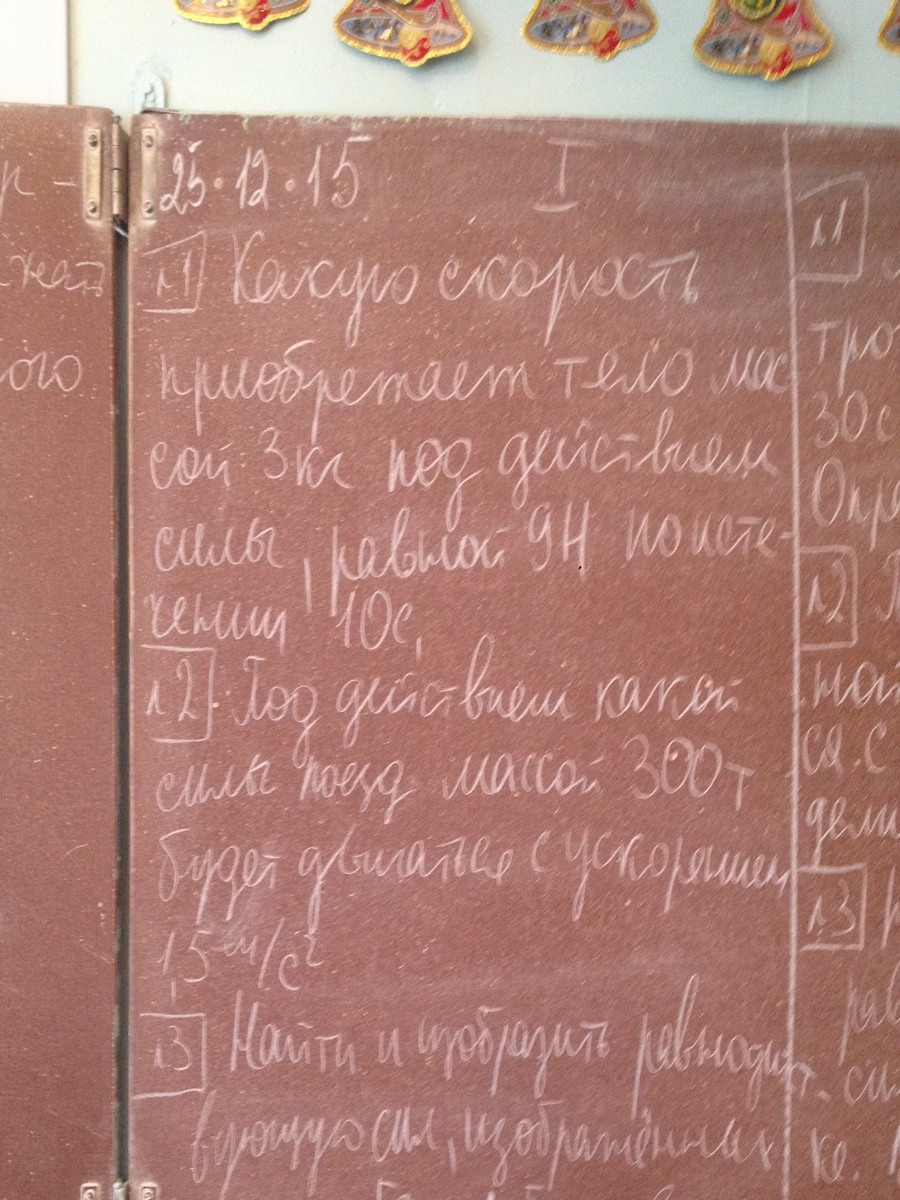 25.12.15
I
л1 Какую скорость
приобретает тело мас
сой 3 кг под действием
силы, равной 9Н по исте-
чении 10с.
л2. Под действием какой
силы поезд массой 300т
будет двигаться с ускорением
1,5 м/с²
л3 Найти и изобразить равнодейст-
вующую сил, изображённых
р-
жать
ого
л1
тро
30 с
Опре
л2 П
най
ся с
дели
л3 Р
рав
си
ке.